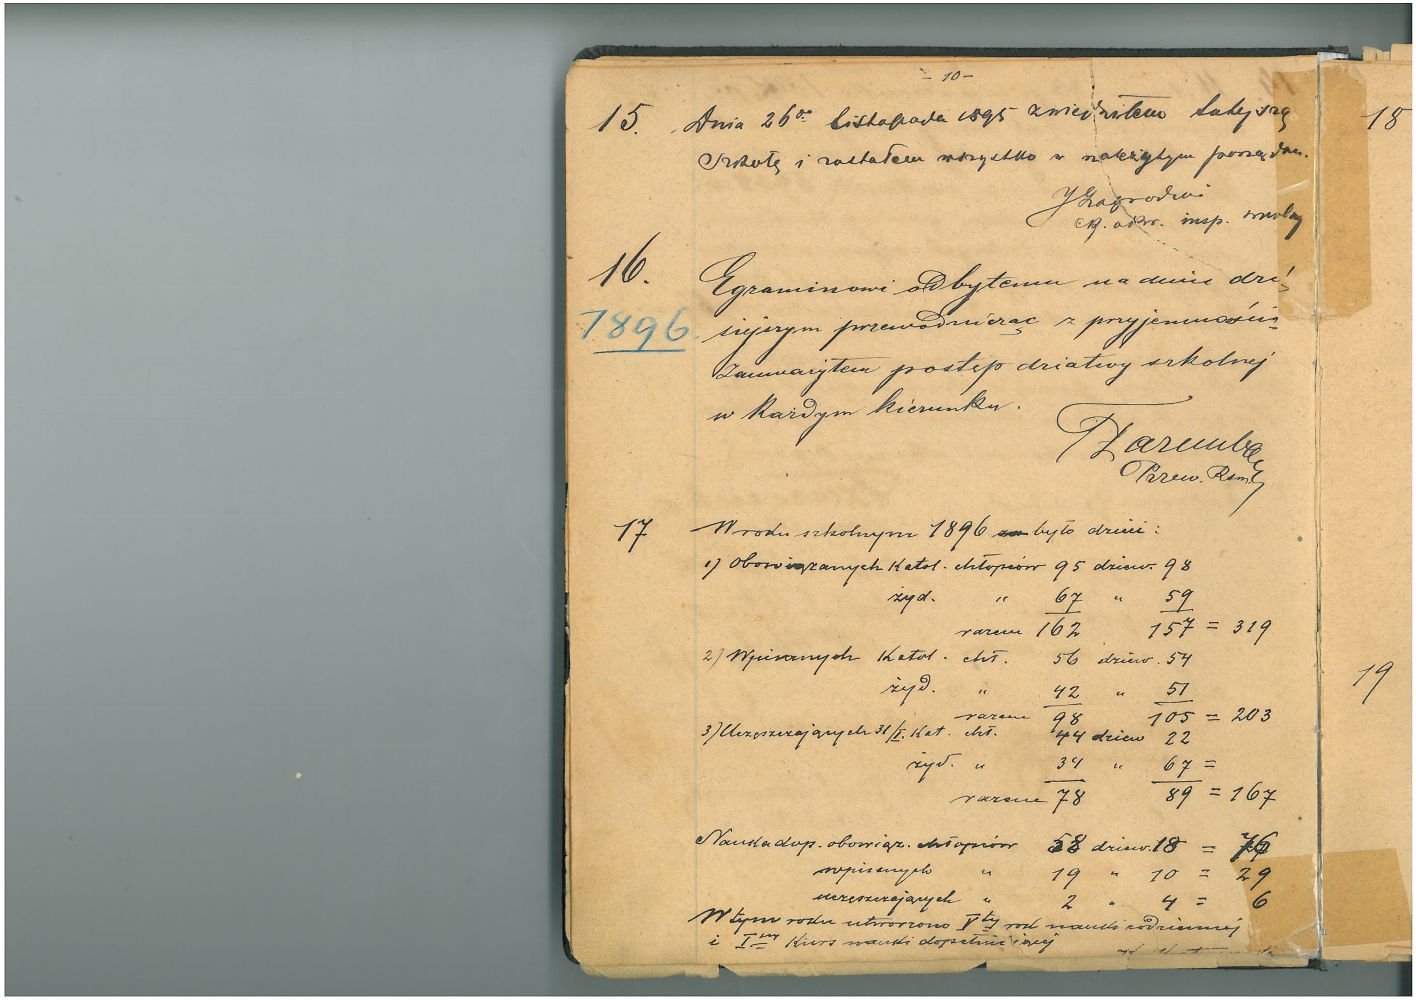 - 10 -
15. Dnia 26go listopada 1895 zwiedziłem tutejszą 18
Szkołę i zastałem wszystko w należytym porządku.
K. okr. insp. szkolny
16. Egzaminowi odbytemu na dniu dzi-
1896. siejszym przewodnicząc z przyjemnością
zauważyłem postęp dziatwy szkolnej
w każdym kierunku.
TZaremba
Przew. Rsm.
17 W roku szkolnym 1896 było dzieci:
1) Obowiązanych Katol. chłopców 95 dziew. 98
żyd. " 67 " 59
razem 162 157 = 319
2) Wpisanych Katol. chł. 56 dziew. 54
żyd. " 42 " 51 19
razem 98 105 = 203
3) Uczęszczających 31/I. Kat. chł. 44 dziew 22
żyd. " 34 " 67 =
razem 78 89 = 167
Nauka dop. obowiąz. chłopców 58 dziew. 18 = 76
wpisanych " 19 " 10 = 29
uczęszczających " 2 " 4 = 6
W tym roku utworzono Vty rok nauki codziennej
i Iszy Kurs nauki dopełniającej